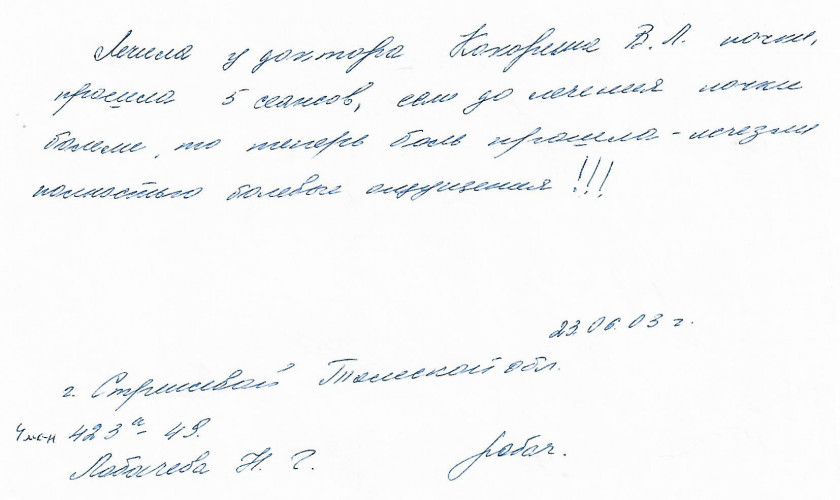 Лечила у доктора Кахорина В. Л. почки,
прошла 5 сеансов, если до лечения почки
болели, то теперь боль прошла - исчезли
полностью болевые ощущения !!!
23.06.03 г.
г. Стрежевой Томской обл.
4 мк-н 423а - 49.
Лобачева Н. Г.